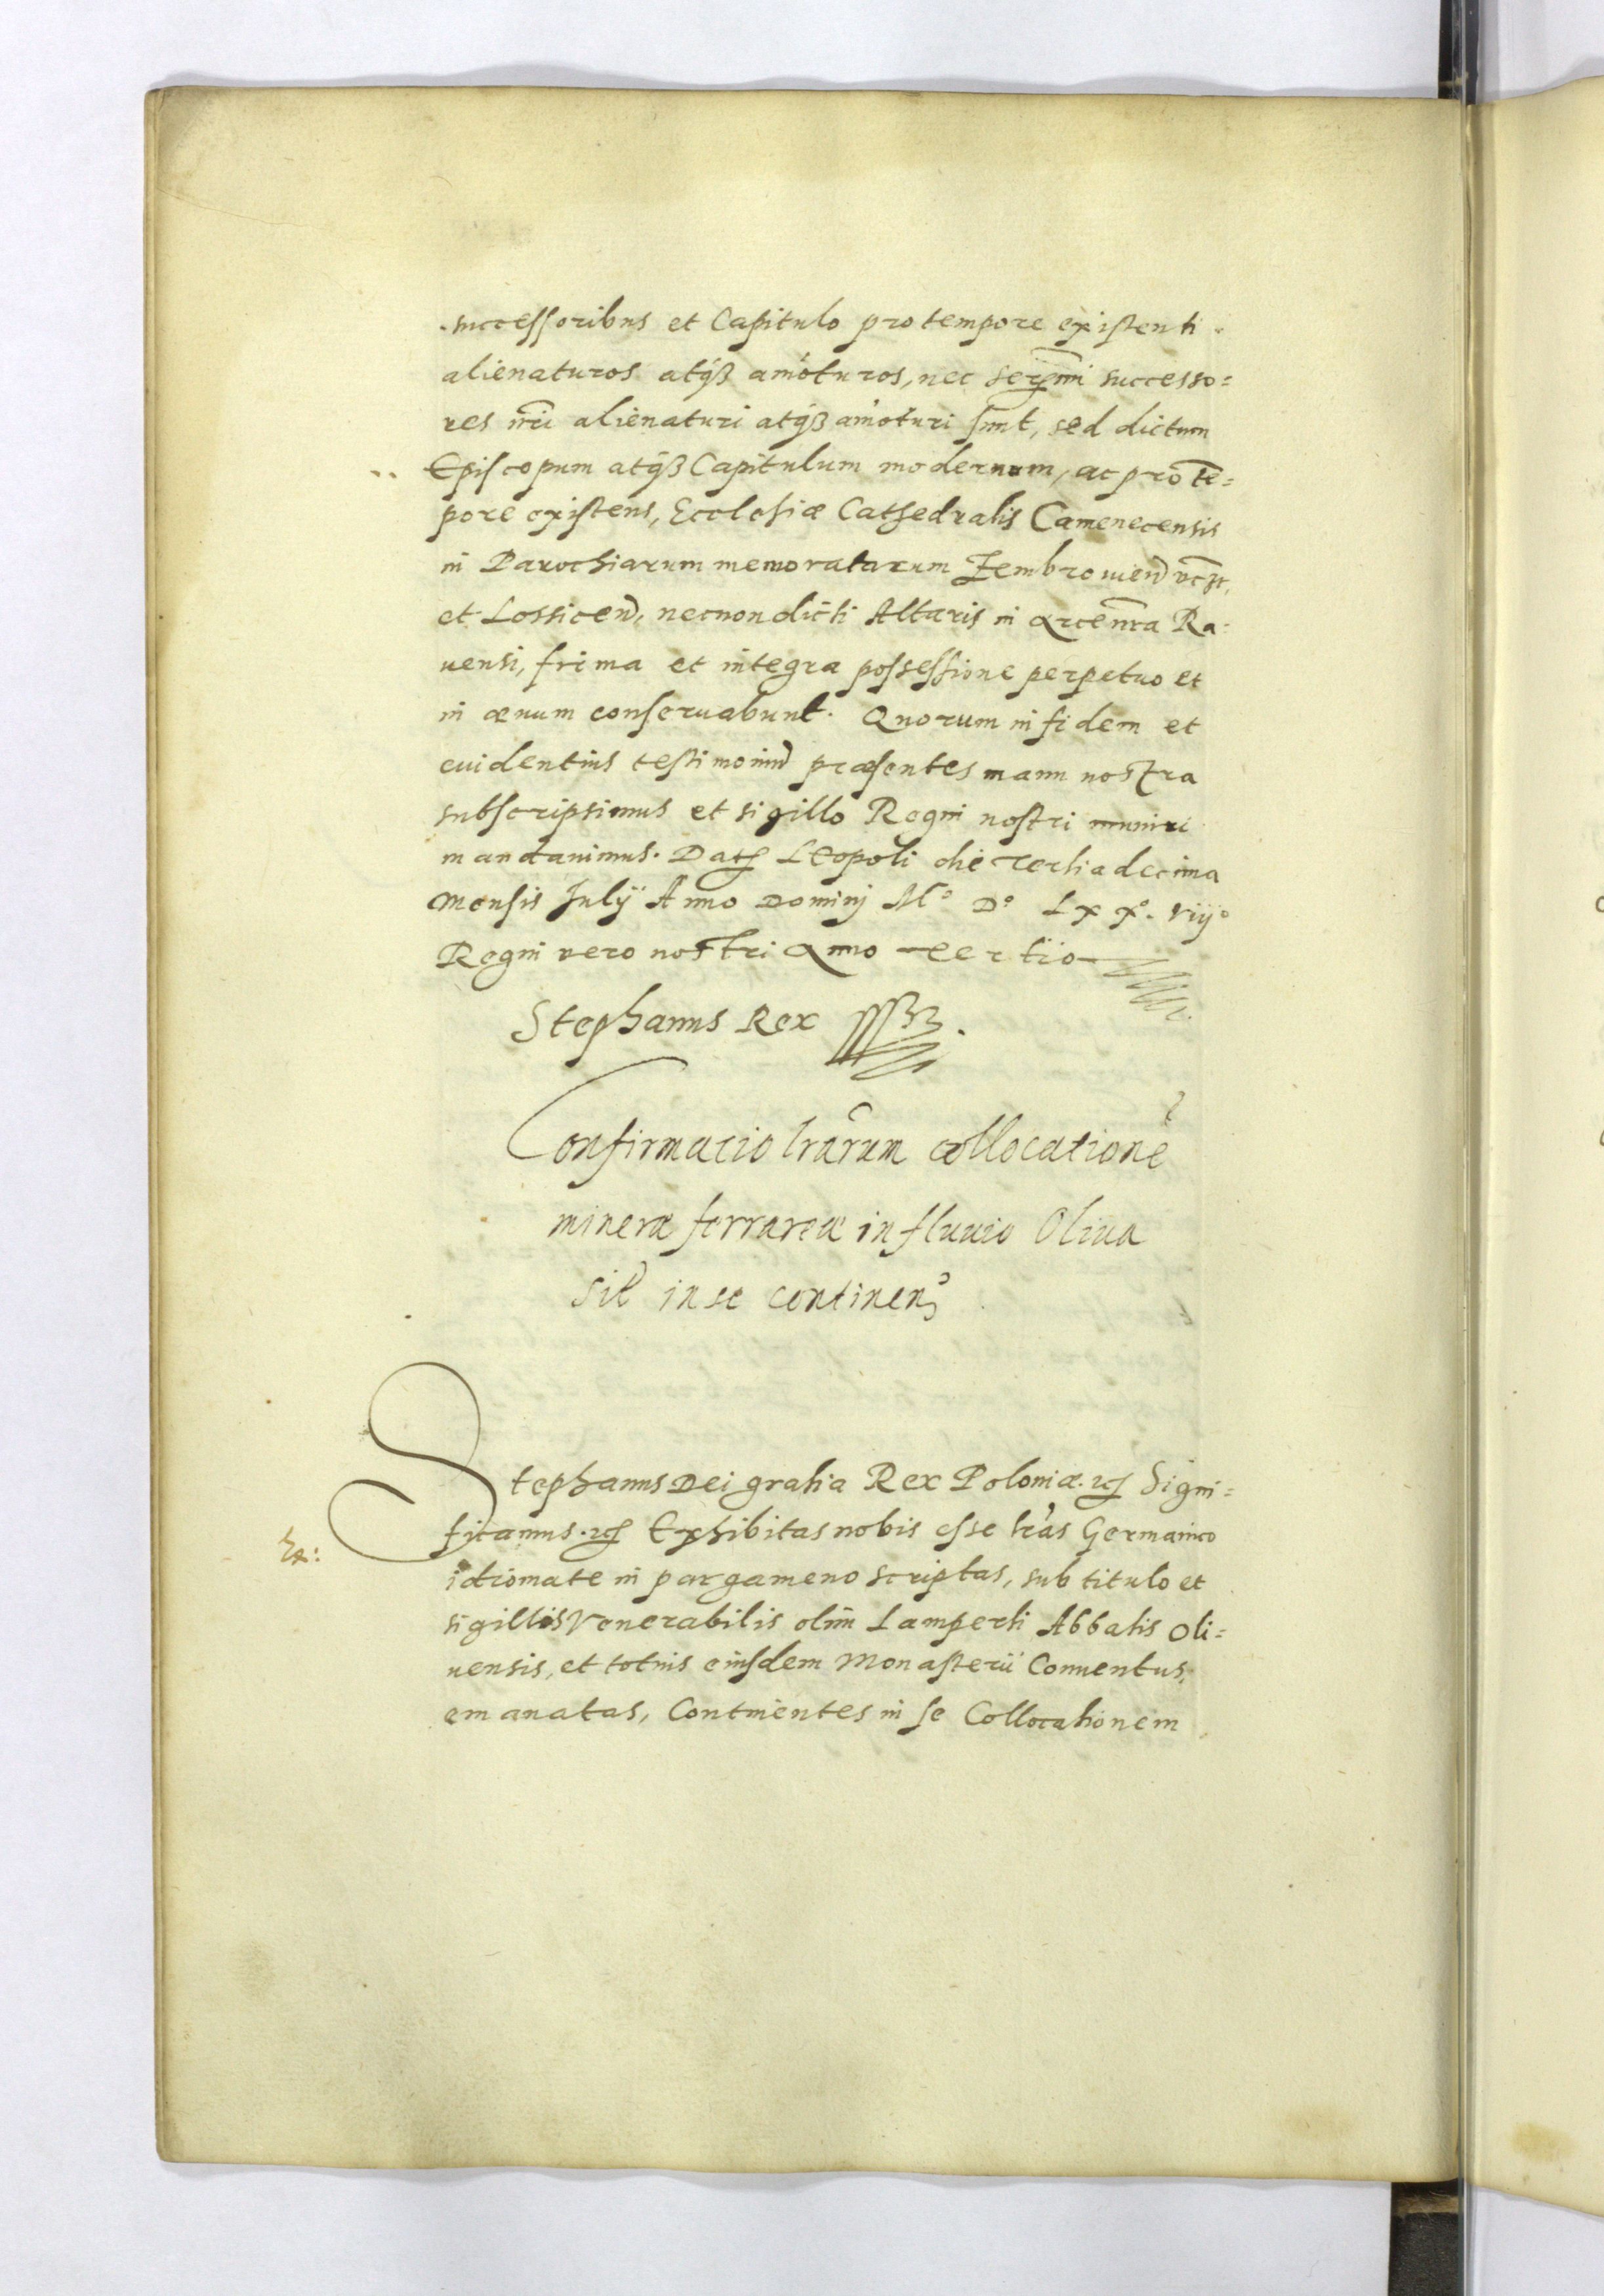 successoribus et Capitulo pro tempore existenti
alienaturos atq́ꝫ amoturos, nec serẽmi successo=
res nr̃i alienaturi atq́ꝫ amoturi sunt, sed dictum
Episcopum atq́ꝫ Capitulum modernum, ac pro tē=
pore existens, Ecclesiæ Cathedralis Camenecensis
in Parochiarum memoratarum Zembrouien̄
et Lossicen̄, necnon dicti Altaris in Ra=
uensi, firma et integra possessione perpetuo et
in æuum conseruabunt. Quorum in fidem et
euidentius testimoniũ præsentes manu nostra
subscripsimus et sigillo Regni nostri muniri
mandauimus. Datꝭ Leopoli die Tertia decima
Mensis Julij Anno Dominj M° D° Lxx°. viij°
Regni vero nostri Anno Tertio
Stephanus Rex
Confirmatio lrãrum collocationẽ
mineræ ferrareæ in fluuio Oliua
sit̃ in se continenꝭ
Stephanus Dei gratia Rex Poloniæ. ꝛcꝭ Signi=
ficamus. ꝛcꝭ Exhibitas nobis esse lrãs Germanico
idiomate in pargameno scriptas, sub titulo et
sigillis Venerabilis olim Lamperti Abbatis Oli=
uensis, et totius eiusdem Monasterii Conuentus,
emanatas, Continentes in se Collocationem